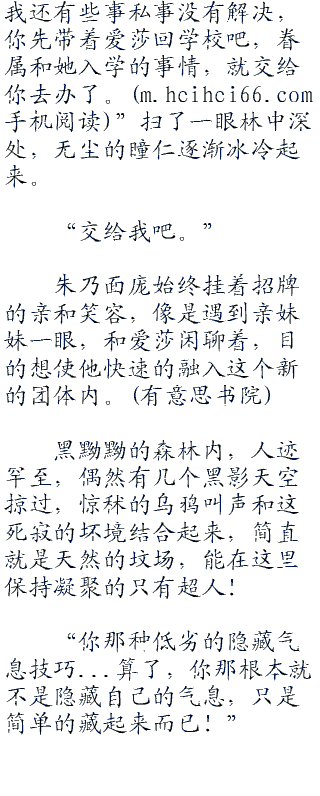 我还有些事私事没有解决，
你先带着爱莎回学校吧，眷
属和她入学的事情，就交给
你去办了。(m.hcihci66.com
手机阅读)”扫了一眼林中深
处，无尘的瞳仁逐渐冰冷起
来。
“交给我吧。”
朱乃面庞始终挂着招牌
的亲和笑容，像是遇到亲妹
妹一眼，和爱莎闲聊着，目
的想使他快速的融入这个新
的团体内。(有意思书院)
黑黝黝的森林内，人迹
罕至，偶然有几个黑影天空
掠过，惊秫的乌鸦叫声和这
死寂的坏境结合起来，简直
就是天然的坟场，能在这里
保持凝聚的只有超人！
“你那种低劣的隐藏气
息技巧...算了，你那根本就
不是隐藏自己的气息，只是
简单的藏起来而已！”